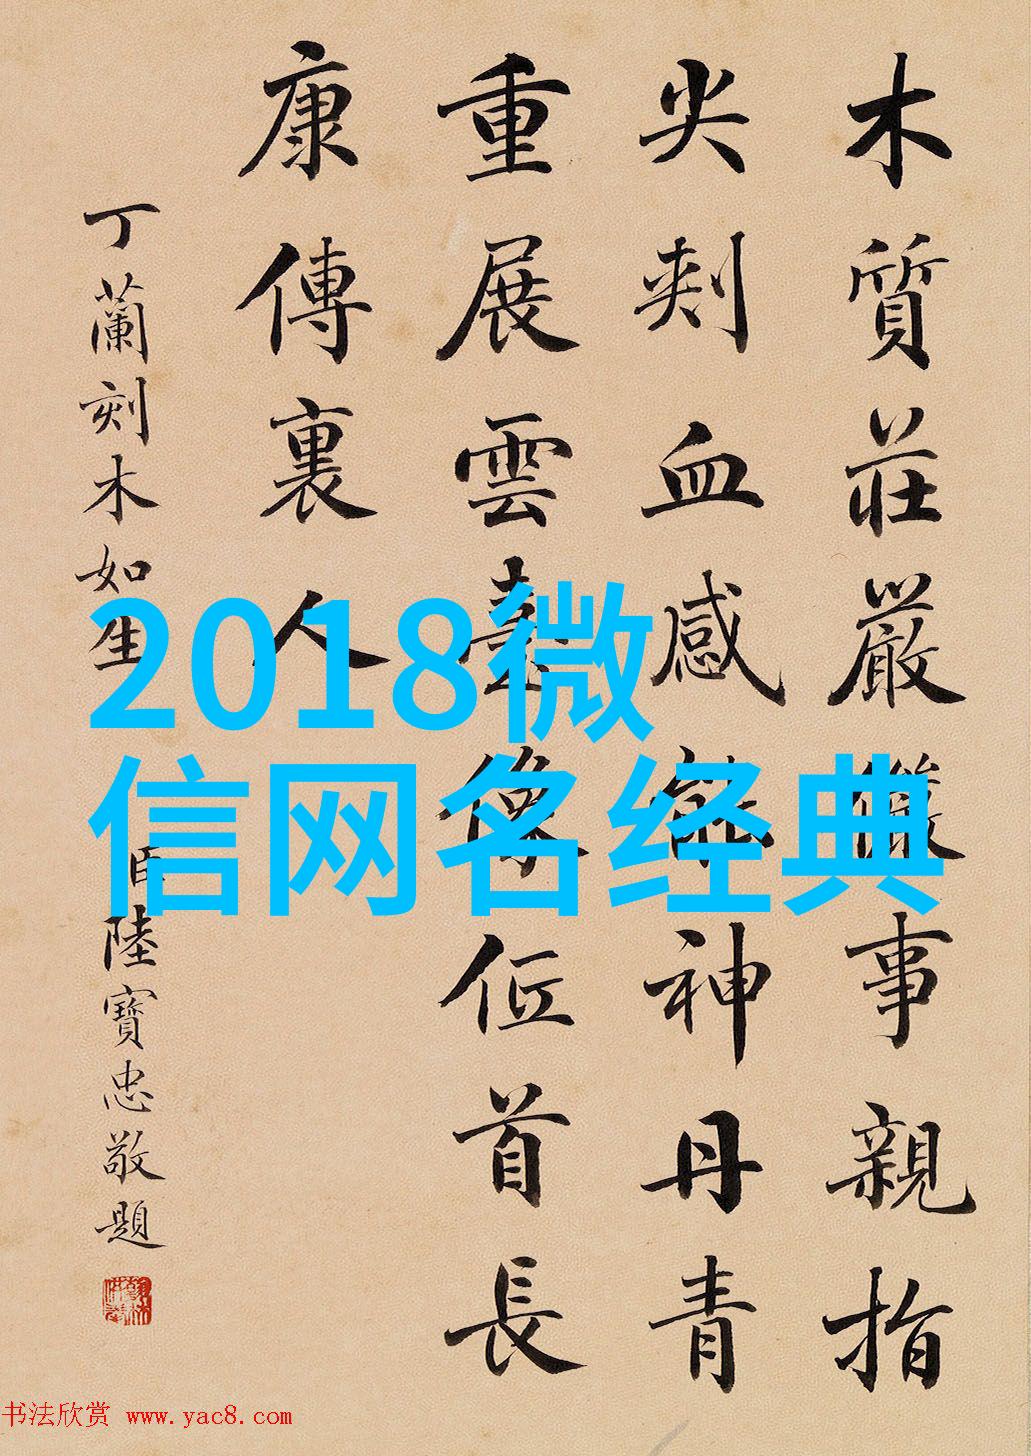 木質莊嚴儀事親指
尖刺血感神丹青
重展雲臺像首長
康傳裏人
丁蘭刻木如生
臣陸寶忠敬題
2018微
信网名经典
书法欣赏 www.yac8.com